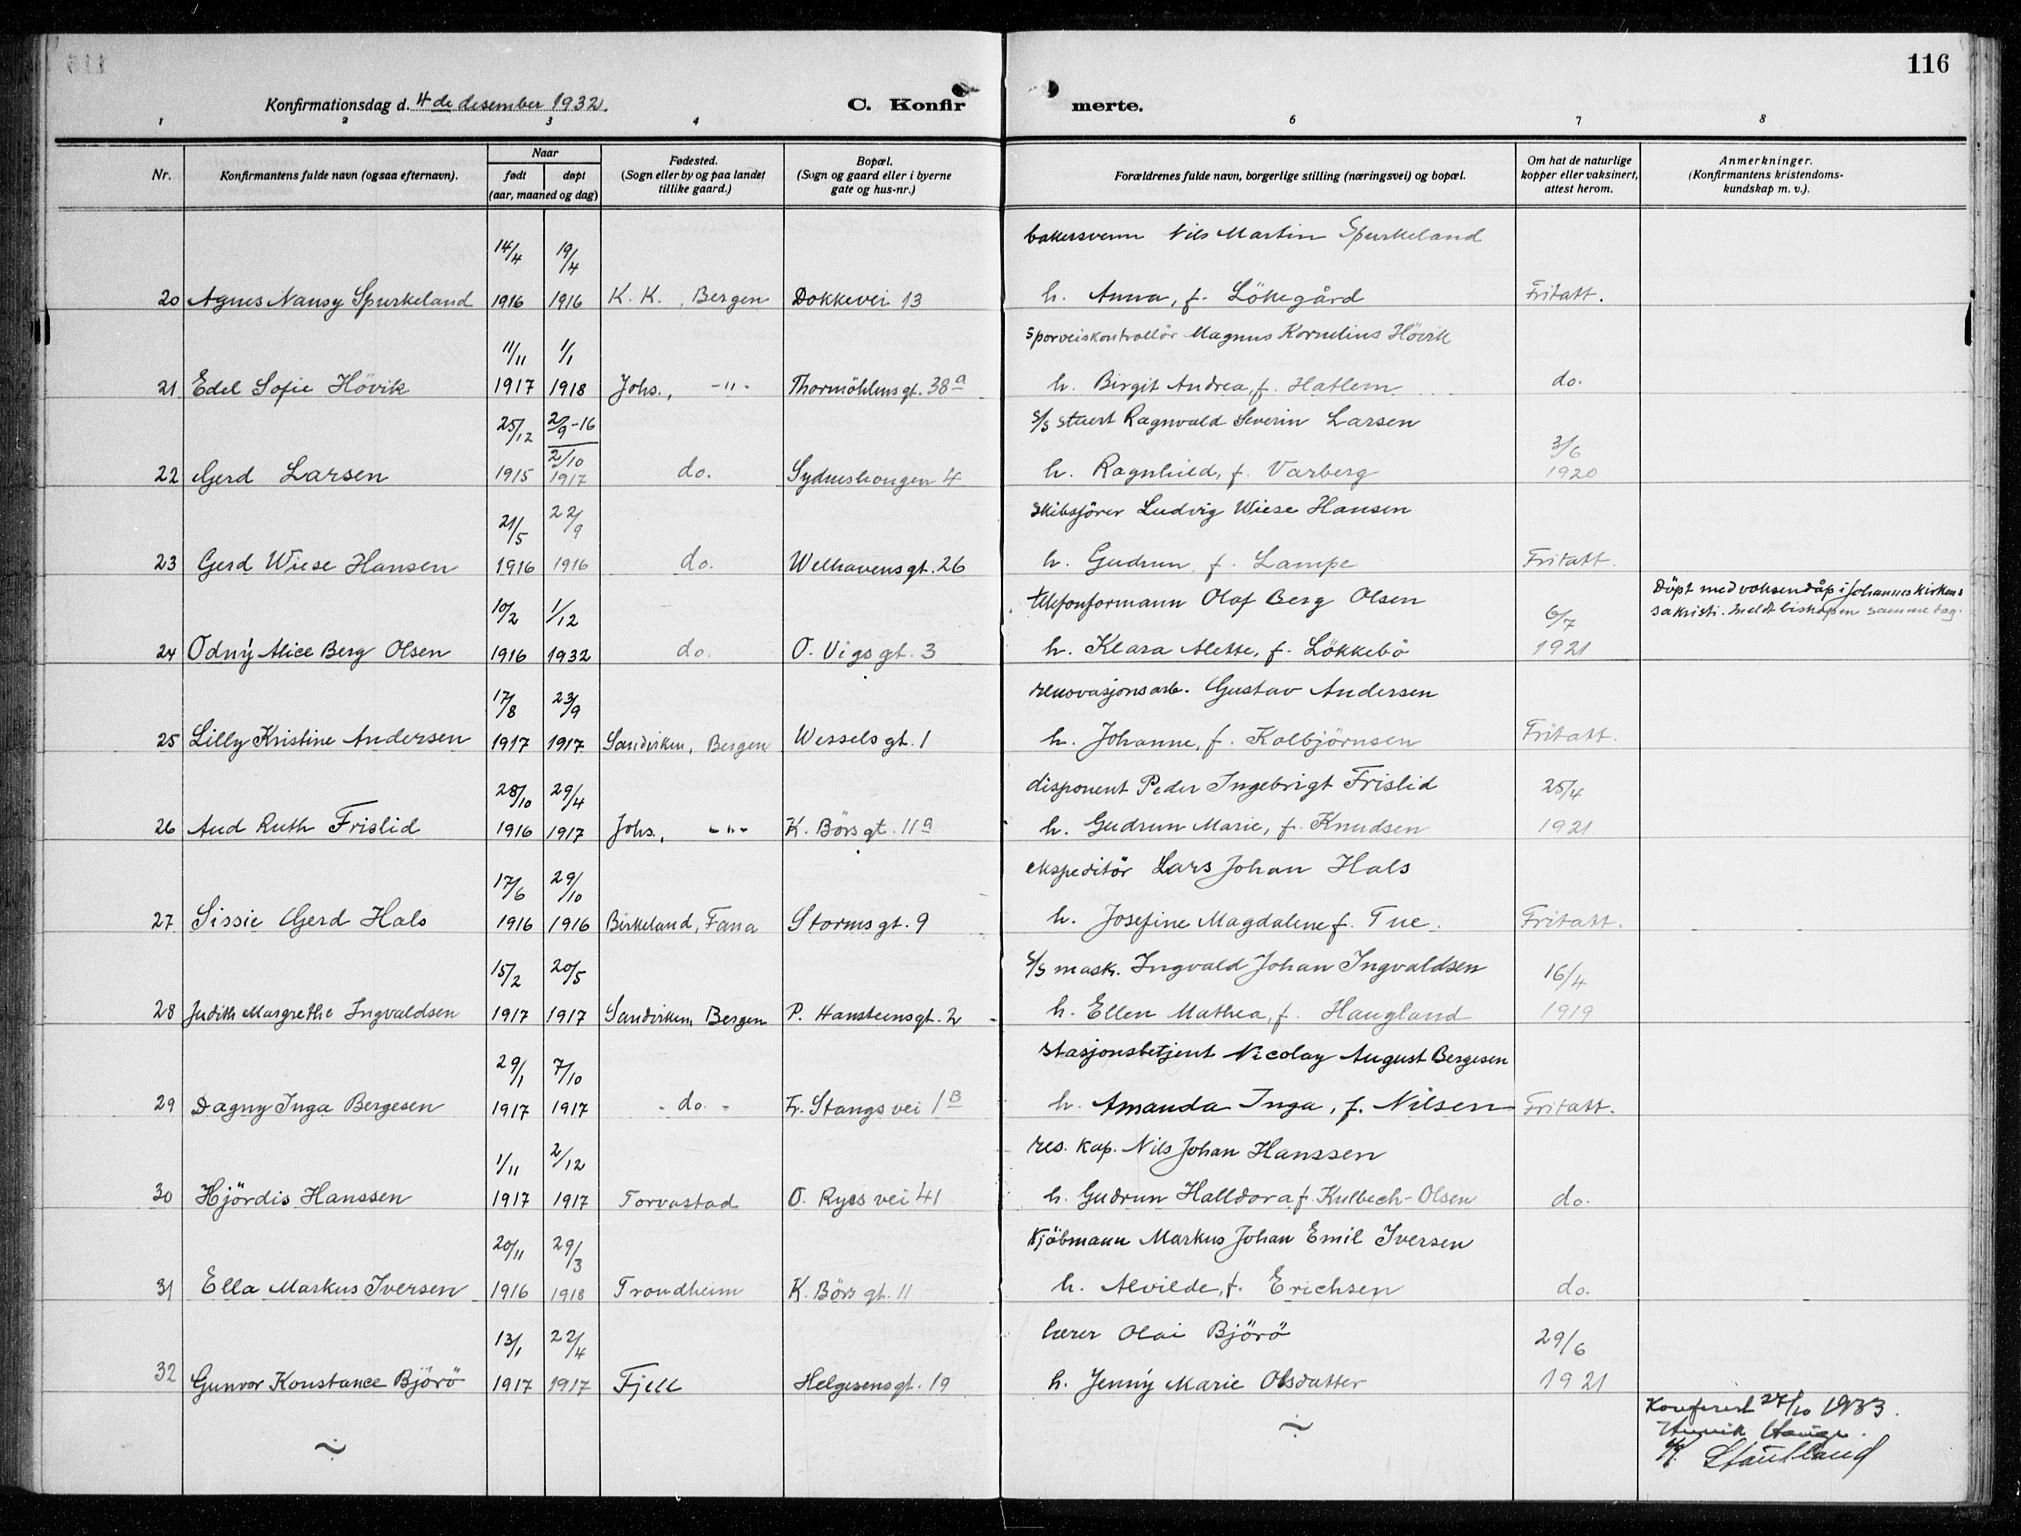 116
Konfirmationsdag d. 4de desember 1932.
C. Konfirmerte.
1 2 3 4 5 6 7 8
Nr.
Konfirmantens fulde navn (ogsaa efternavn).
Naar
født
døpt
(aar, maaned og dag)
Fødested.
(Sogn eller by og paa landet
tillike gaard.)
Bopæl.
(Sogn og gaard eller i byerne
gate og hus-nr.)
Forældrenes fulde navn, borgerlige stilling (næringsvei) og bopæl.
Om hat de naturlige
kopper eller vaksinert,
attest herom.
Anmerkninger.
(Konfirmantens kristendoms-
kundskap m. v.).
14/4 19/4 bakersvenn Nils Martin Spurkeland
20 Agnes Nansy Spurkeland 1916 1916 K. K., Bergen Dokkevei 13 h. Anna, f. Lökegård Fritatt.
11/11 1/1 Sporveiskontrollör Magnus Kornelius Hövik
21 Edel Sofie Hövik 1917 1918 Johs., -"- Thormöhlensgt. 38a h. Birgit Andrea, f. Hatlem do.
25/12 2/9-16 S/S stuert Ragnvald Severin Larsen 3/6
22 Gerd Larsen 1915 2/10 1917 do. Sydneshaugen 4 h. Ragnhild, f. Varberg 1920
21/5 22/9 Skibsförer Ludvig Wiese Hansen
23 Gerd Wiese Hansen 1916 1916 do. Welhavensgt. 26 h. Gudrun, f. Lampe Fritatt.
10/2 1/12 telefonformann Olaf Berg Olsen 6/7 Döpt med voksendåp i Johanneskirkens
sakristi. Meldt biskopen samme dag.
24 Odny Alice Berg Olsen 1916 1932 do. O. Vigs gt. 3 h. Klara Alette, f. Lökkebö 1921
17/8 23/9 renovasjonsarb. Gustav Andersen
25 Lilly Kristine Andersen 1917 1917 Sandviken, Bergen Wessels gt. 1 h. Johanne, f. Kolbjörnsen Fritatt.
28/10 29/4 disponent Peder Ingebrigt Frislid 25/4
26 Aud Ruth Frislid 1916 1917 Johs., -"- K. Börs gt. 11a h. Gudrun Marie, f. Knudsen 1921
17/6 29/10 ekspeditör Lars Johan Hals
27 Sissie Gerd Hals 1916 1916 Birkeland, Fana Storms gt. 9 h. Josefine Magdalene f. Tue. Fritatt.
15/2 20/5 S/S mask. Ingvald Johan Ingvaldsen 16/4
28 Judith Margrethe Ingvaldsen 1917 1917 Sandviken, Bergen P. Hansteensgt. 2 h. Ellen Mathea, f. Haugland 1919
29/1 7/10 stasjonsbetjent Nicolay August Bergesen
29 Dagny Inga Bergesen 1917 1917 - do. - Fr. Stangs vei 1B h. Amanda Inga, f. Nilsen Fritatt.
1/11 2/12 res. kap. Nils Johan Hanssen
30 Hjördis Hanssen 1917 1917 Torvastad O. Ryes vei 41 h. Gudrun Halldora f. Kulbech-Olsen do.
20/11 29/3 Kjöbmann Markus Johan Emil Iversen
31 Ella Markus Iversen 1916 1918 Trondheim K. Börs gt. 11 h. Alvilde, f. Erichsen do.
13/1 22/4 lærer Olai Björö 29/6
32 Gunvor Konstance Björö 1917 1917 Fjell Helgesensgt. 19 h. Jenny Marie Olsdatter 1921
Konferert 24/10 1933.